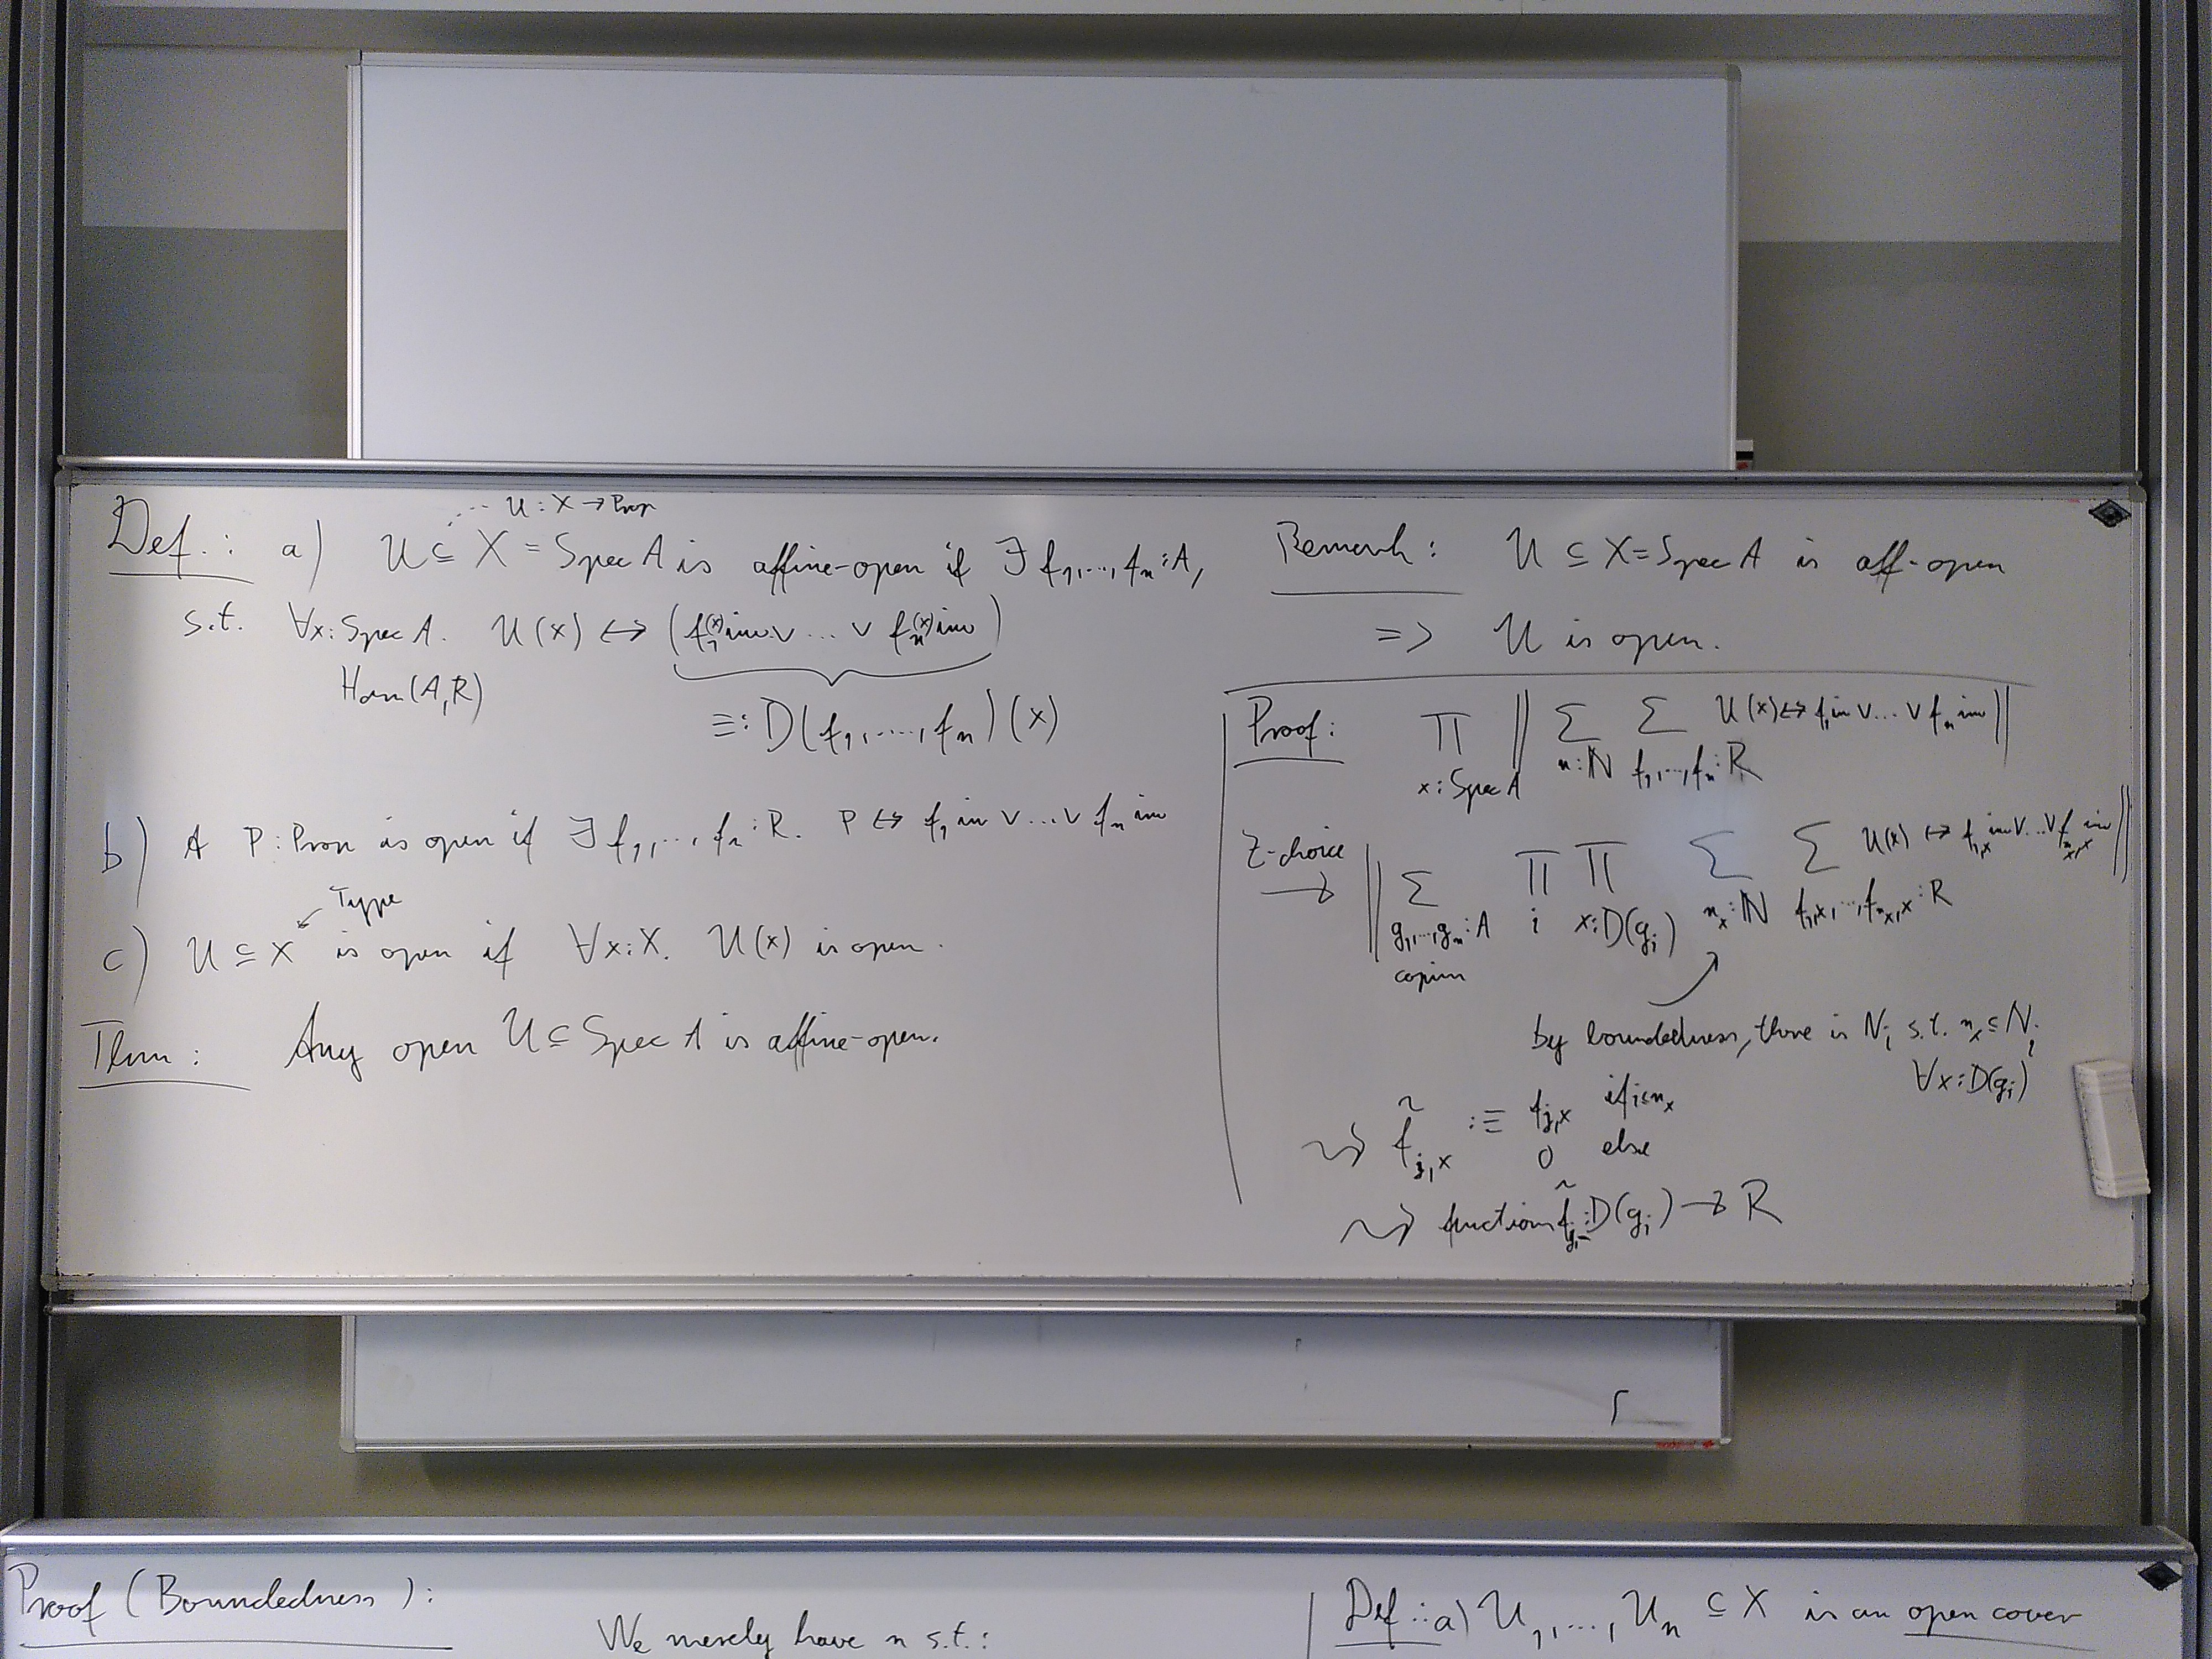 U : X → Prop
Def.: a) U ⊆ X = Spec A is affine-open if ∃ f₁,...,fₙ : A,
s.t. ∀x : Spec A. U(x) ↔ (f₁(x) inv ∨ ... ∨ fₙ(x) inv)
Hom(A,R)
≡: D(f₁,....,fₙ)(x)
b) A P : Prop is open if ∃ f₁,...,fₙ : R. P ↔ f₁ inv ∨...∨ fₙ inv
Type
c) U ⊆ X is open if ∀x:X. U(x) is open.
Thm: Any open U ⊆ Spec A is affine-open.
Remark: U ⊆ X = Spec A is aff-open
=> U is open.
Proof: Π_{x : Spec A} ‖ Σ_{n : ℕ} Σ_{f₁,...,fₙ : R} U(x) ↔ f₁ inv ∨...∨ fₙ inv ‖
Z-choice → ‖ Σ_{g₁,...,gₘ : A} Π_i Π_{x : D(g_i)} Σ_{n_x : ℕ} Σ_{f_{1,x},...,f_{n_x,x} : R} U(x) ↔ f_{1,x} inv ∨...∨ f_{n_x,x} inv ‖
by boundedness, there is N_i s.t. n_x ≤ N_i
∀x : D(g_i)
⇝ f̃_{j,x} :≡ f_{j,x} if j≤n_x
0 else
⇝ functions f̃_j : D(g_i) → R
Proof (Boundedness):
We merely have n s.t.:
Def.: a) U₁,...,Uₙ ⊆ X is an open cover